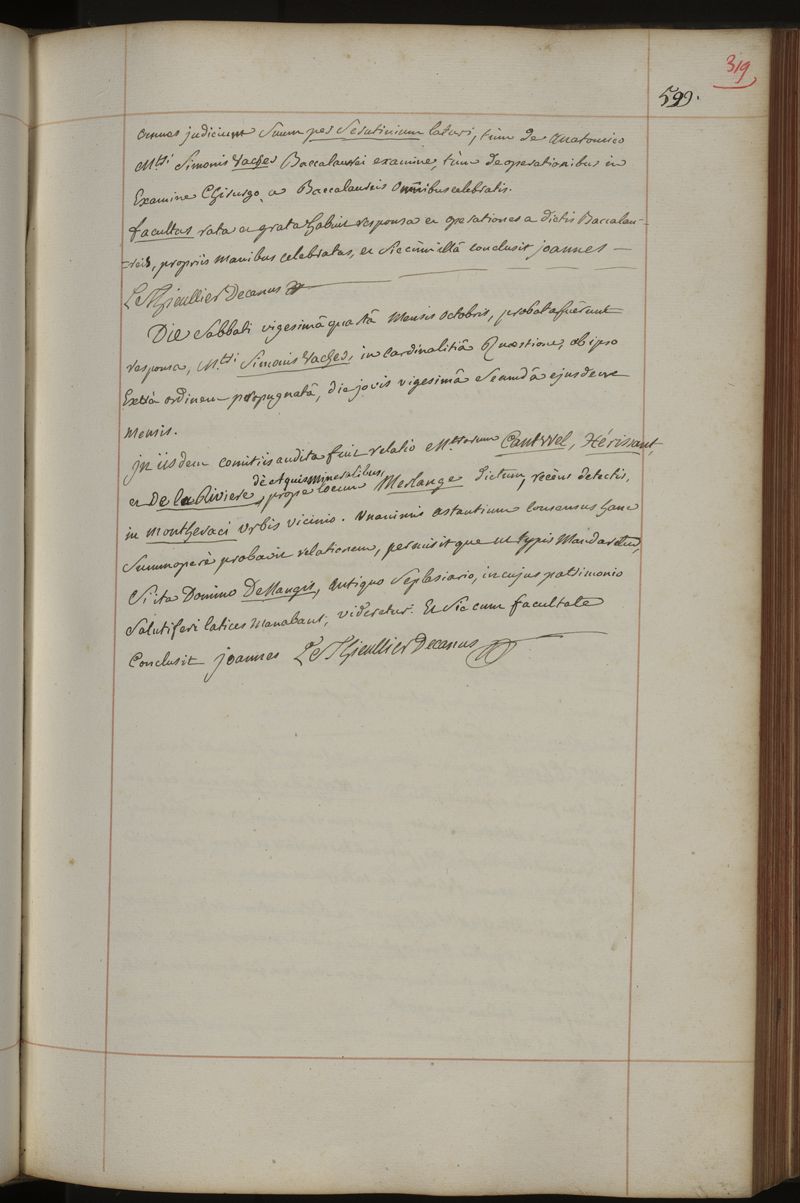 319
599.
omnes judicium suum per Scrutinium laturi, tùm de anatomico
M.tri Simonis Vacher Baccalaurei examine, tùm de operationibus in
Examine Chirurgo, a Baccalaureis omnibus celebratis.
facultas rata et grata habuit responsa et operationes a dictis Baccalau-
-reis, propriis manibus celebratas, et sic cùm illâ conclusit joannes —
Le Thieullier Decanus
Die Sabbati vigesimâ quartâ mensis octobris, probata fuêrunt
responsa, M.tri Simonis Vacher, in Cardinalitiâ Quæstione, ab ipso
Extrà ordinem propugnatâ, die jovis vigesimâ Secundâ ejusdem
mensis.
jn iisdem comitiis audita fuit relatio M.trorum Cantwel, Hérissant,
et De la Riviere, de Aquis mineralibus, propè locum Merlange dictum, recèns detectis,
in montheraci urbis vicinio. Unanimis astantium consensus hanc
Summoperè probavit relationem, permisitque ut typis Mandaretur,
Si ita Domino De Mangis, antiquo Seplasiario, in cujus patrimonio
Salutiferi latices manabant, videretur. Et sic cum facultate
Conclusit joannes Le Thieullier Decanus